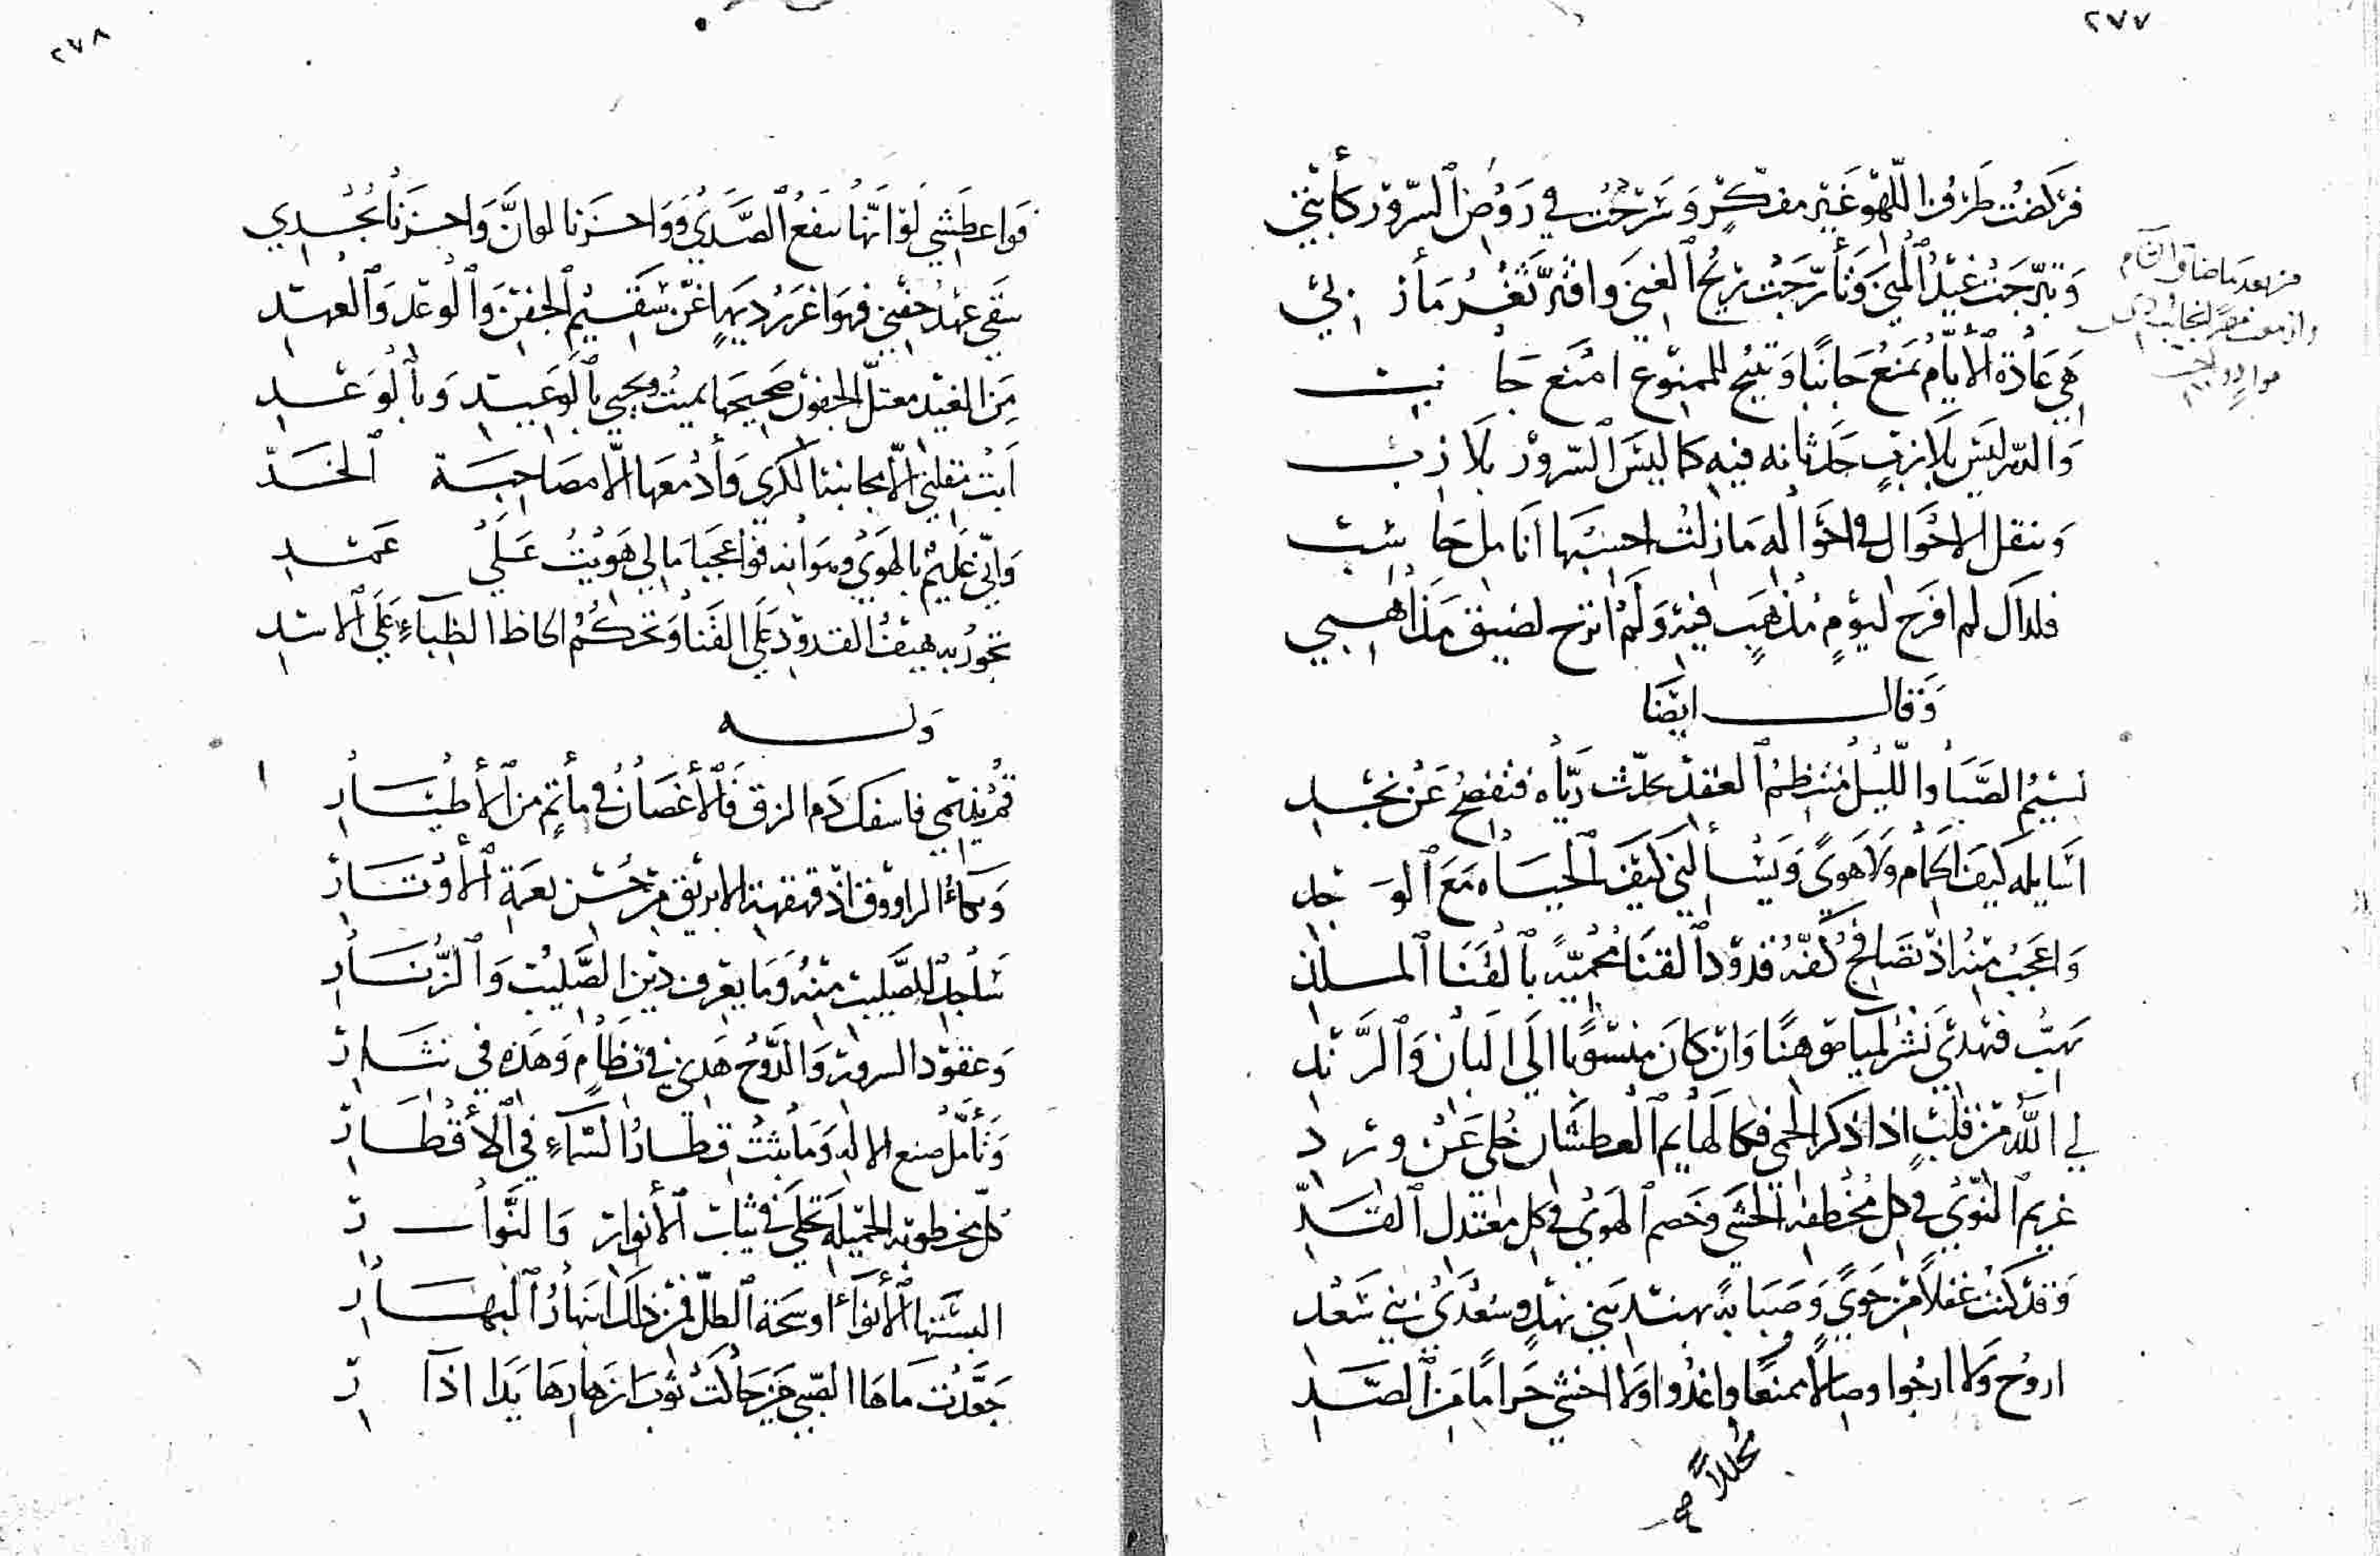 ٢٧٧
فركضت طرف اللهو غير مفكر وسرحت في روض السرور كأبتي
وتبرجت غيد المنى وتأرجت ريح الغنى وافتر ثغر مأربي
هي عادة الأيام تمنع جانبا وتبيح للممنوع امنع جانب
والدهر ليس بلازب حدثانه فيه كما ليس السرور بلازب
وتنقل الاحوال في احواله ما زلت احسبها انامل حاسب
فلذاك لم افرح ليوم مذهب فيه ولم اترح لضيق مذاهبي
من بعد ما ضاق
وقال ايضا
نسيم الصبا والليل منتظم العقد تحدث رياه فتفصح عن نجد
اسايله كيف الحمام ولا هوى ويسألني كيف الحياه مع الوجد
واعجب منه اذ تصافح كفه قدود القنا محمية بالقنا الملد
تهب فتهدي نشر لمياء موهنا وان كان منسوبا الى البان والرند
لي الله من قلب اذا ذكر الحمى فكالهايم العطشان خلي عن ورد
غريم النوى في كل مخطفة الحشى وخصم الهوى في كل معتدل القد
وقد كنت غفلا من جوى وصبابة بهند بني نهد وسعدى بني سعد
اروح ولا ارجوا وصالا ممنعا واغدوا ولا اخشى حراما من الصد
محللا
٢٧٨
فواعطشي لو انها تنفع الصدي وواحزنا لو ان واحزنا تجدي
سقى عهد جفني فهو اغزر ديمة اغن سقيم الجفن والوعد والعهد
من الغيد معتل الجفون صحيحها يميت ويحيي بالوعيد وبالوعد
ابت مقلتي الا مجانبة الكرى وأدمعها الا مصاحبة الخد
واني عليم بالهوى وهوانه فواعجبا مالي هويت على عمد
تجور به هيف القدود على القنا وتحكم الحاظ الظباء على الاسد
وله
قم نديمي فاسفك دم الزق فالأغصان في مأتم من الأطيار
وبكاء الراووق اذ قهقهة الابريق من حسن نغمة الأوتار
ساجد للصليب منه وما يعرف دين الصليب والزنار
وعقود السرور والدوح هذي في نظام وهذه في نثار
وتأمل صنع الاله وما بثت قطار السماء في الأقطار
كل مخطوبة الخميلة تجلى في ثياب الأنوار والنوار
البستها الأنواء اوشحة الطل فمن ذلك انبهار البهار
جعدت ماءها الصبي حين حاكت ثوب ازهارها يدا اذار